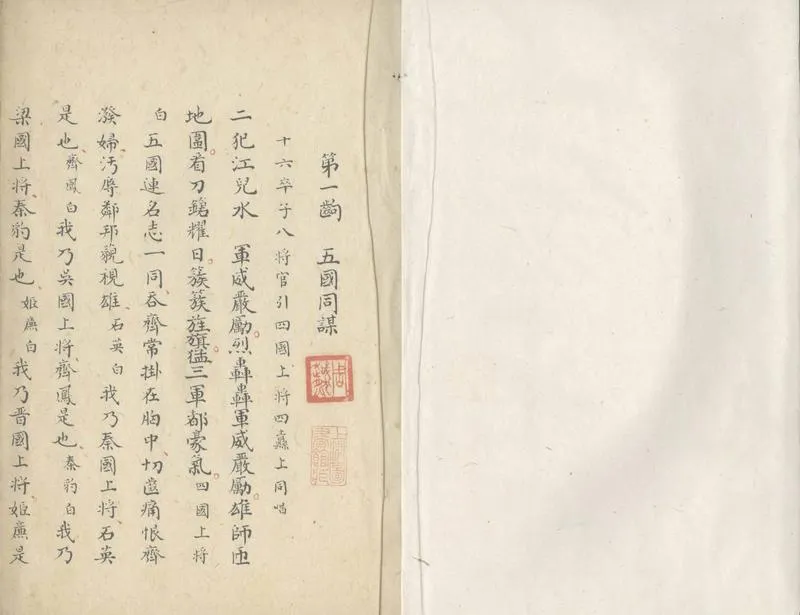 第一齣　五國同謀
十六卒子八將官引四國上將四纛上同唱
二犯江兒水　軍威嚴勵。烈轟轟軍威嚴勵。雄師匝
地圍。看刀鎗耀日。簇簇旌旗猛。三軍都豪氣。四國上將
白五國連名志一同、吞齊常掛在胸中、切齒痛恨齊
潑婦、汚辱鄰邦藐視雄、石英白我乃秦國上將、石英
是也、齊鳳白我乃吳國上將、齊鳳是也、秦豹白我乃
梁國上將、秦豹是也、姬廉白我乃晋國上將、姬廉是